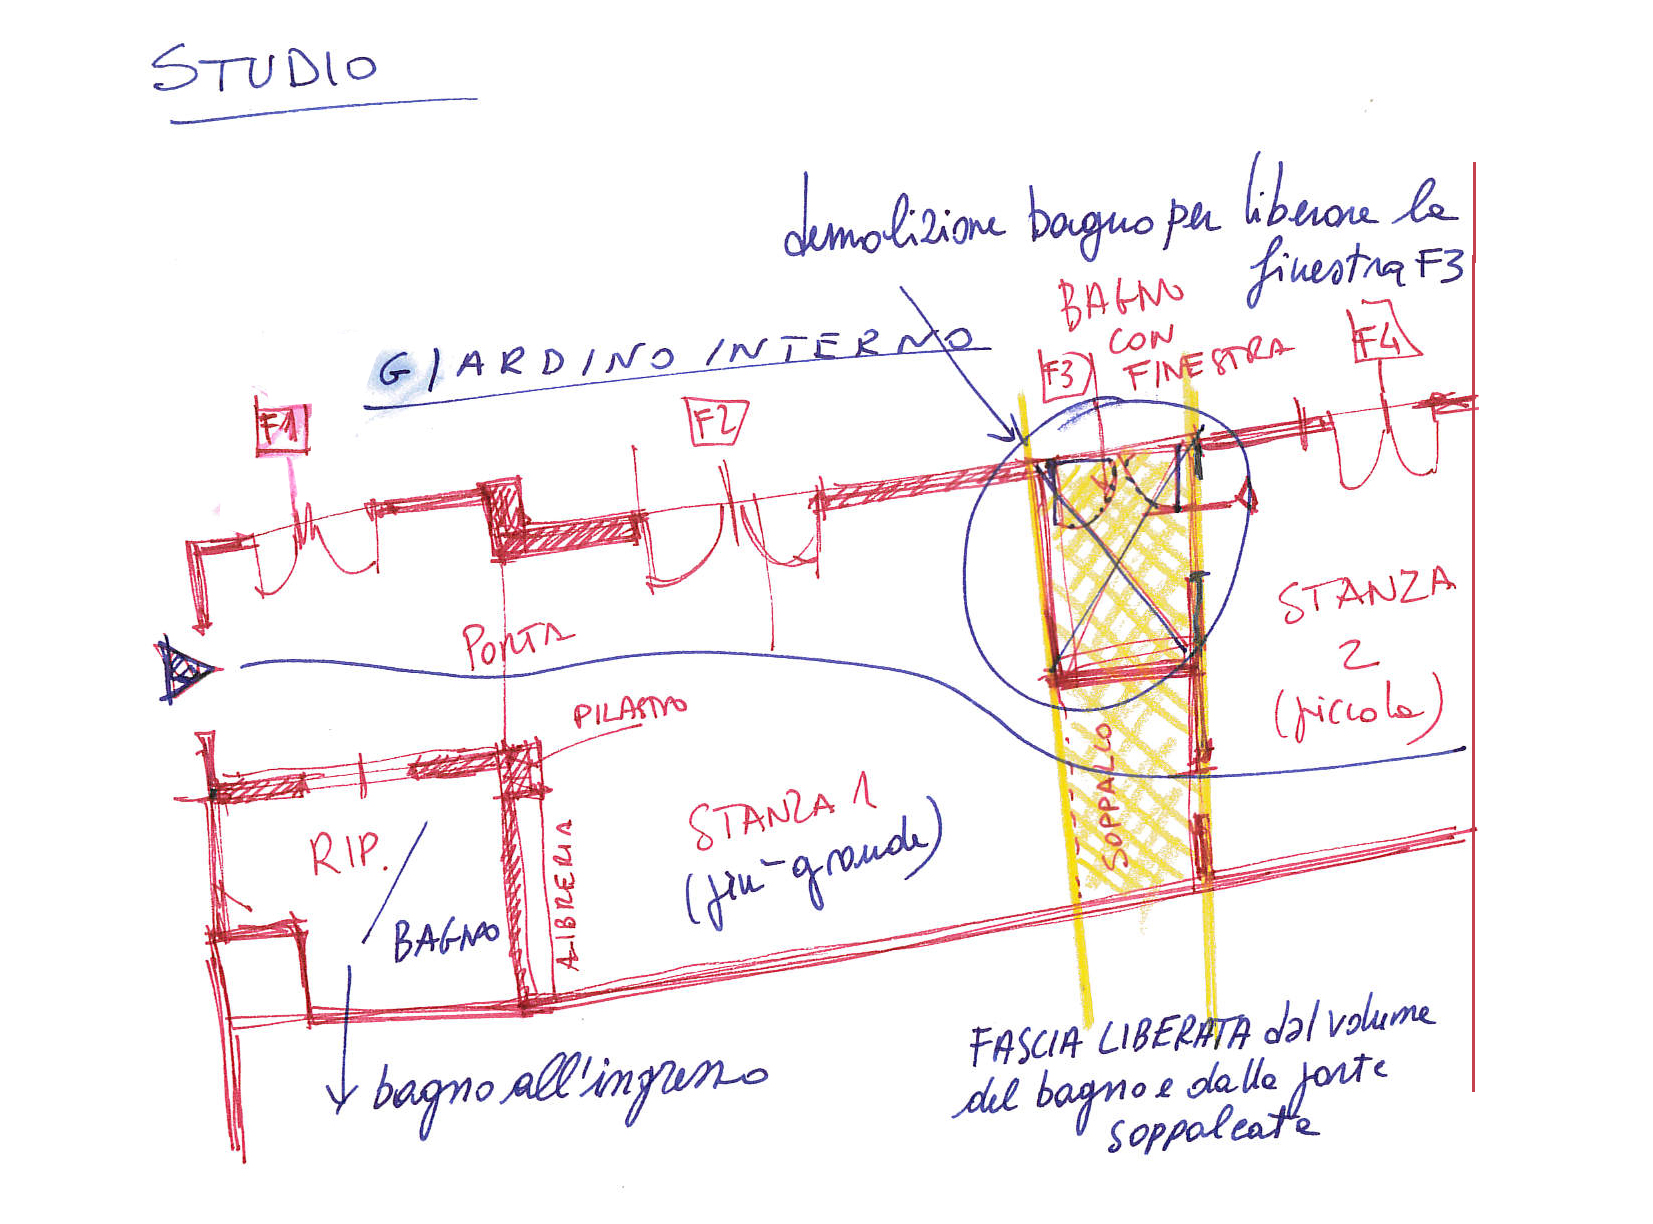 STUDIO
demolizione bagno per liberare la
finestra F3
BAGNO
CON
FINESTRA
GIARDINO INTERNO
F1
F2
F3
F4
PORTA
PILASTRO
STANZA
2
(piccola)
STANZA 1
(più grande)
SOPPALCO
LIBRERIA
RIP.
/
BAGNO
bagno all'ingresso
FASCIA LIBERATA dal volume
del bagno e dalla parte
soppalcata